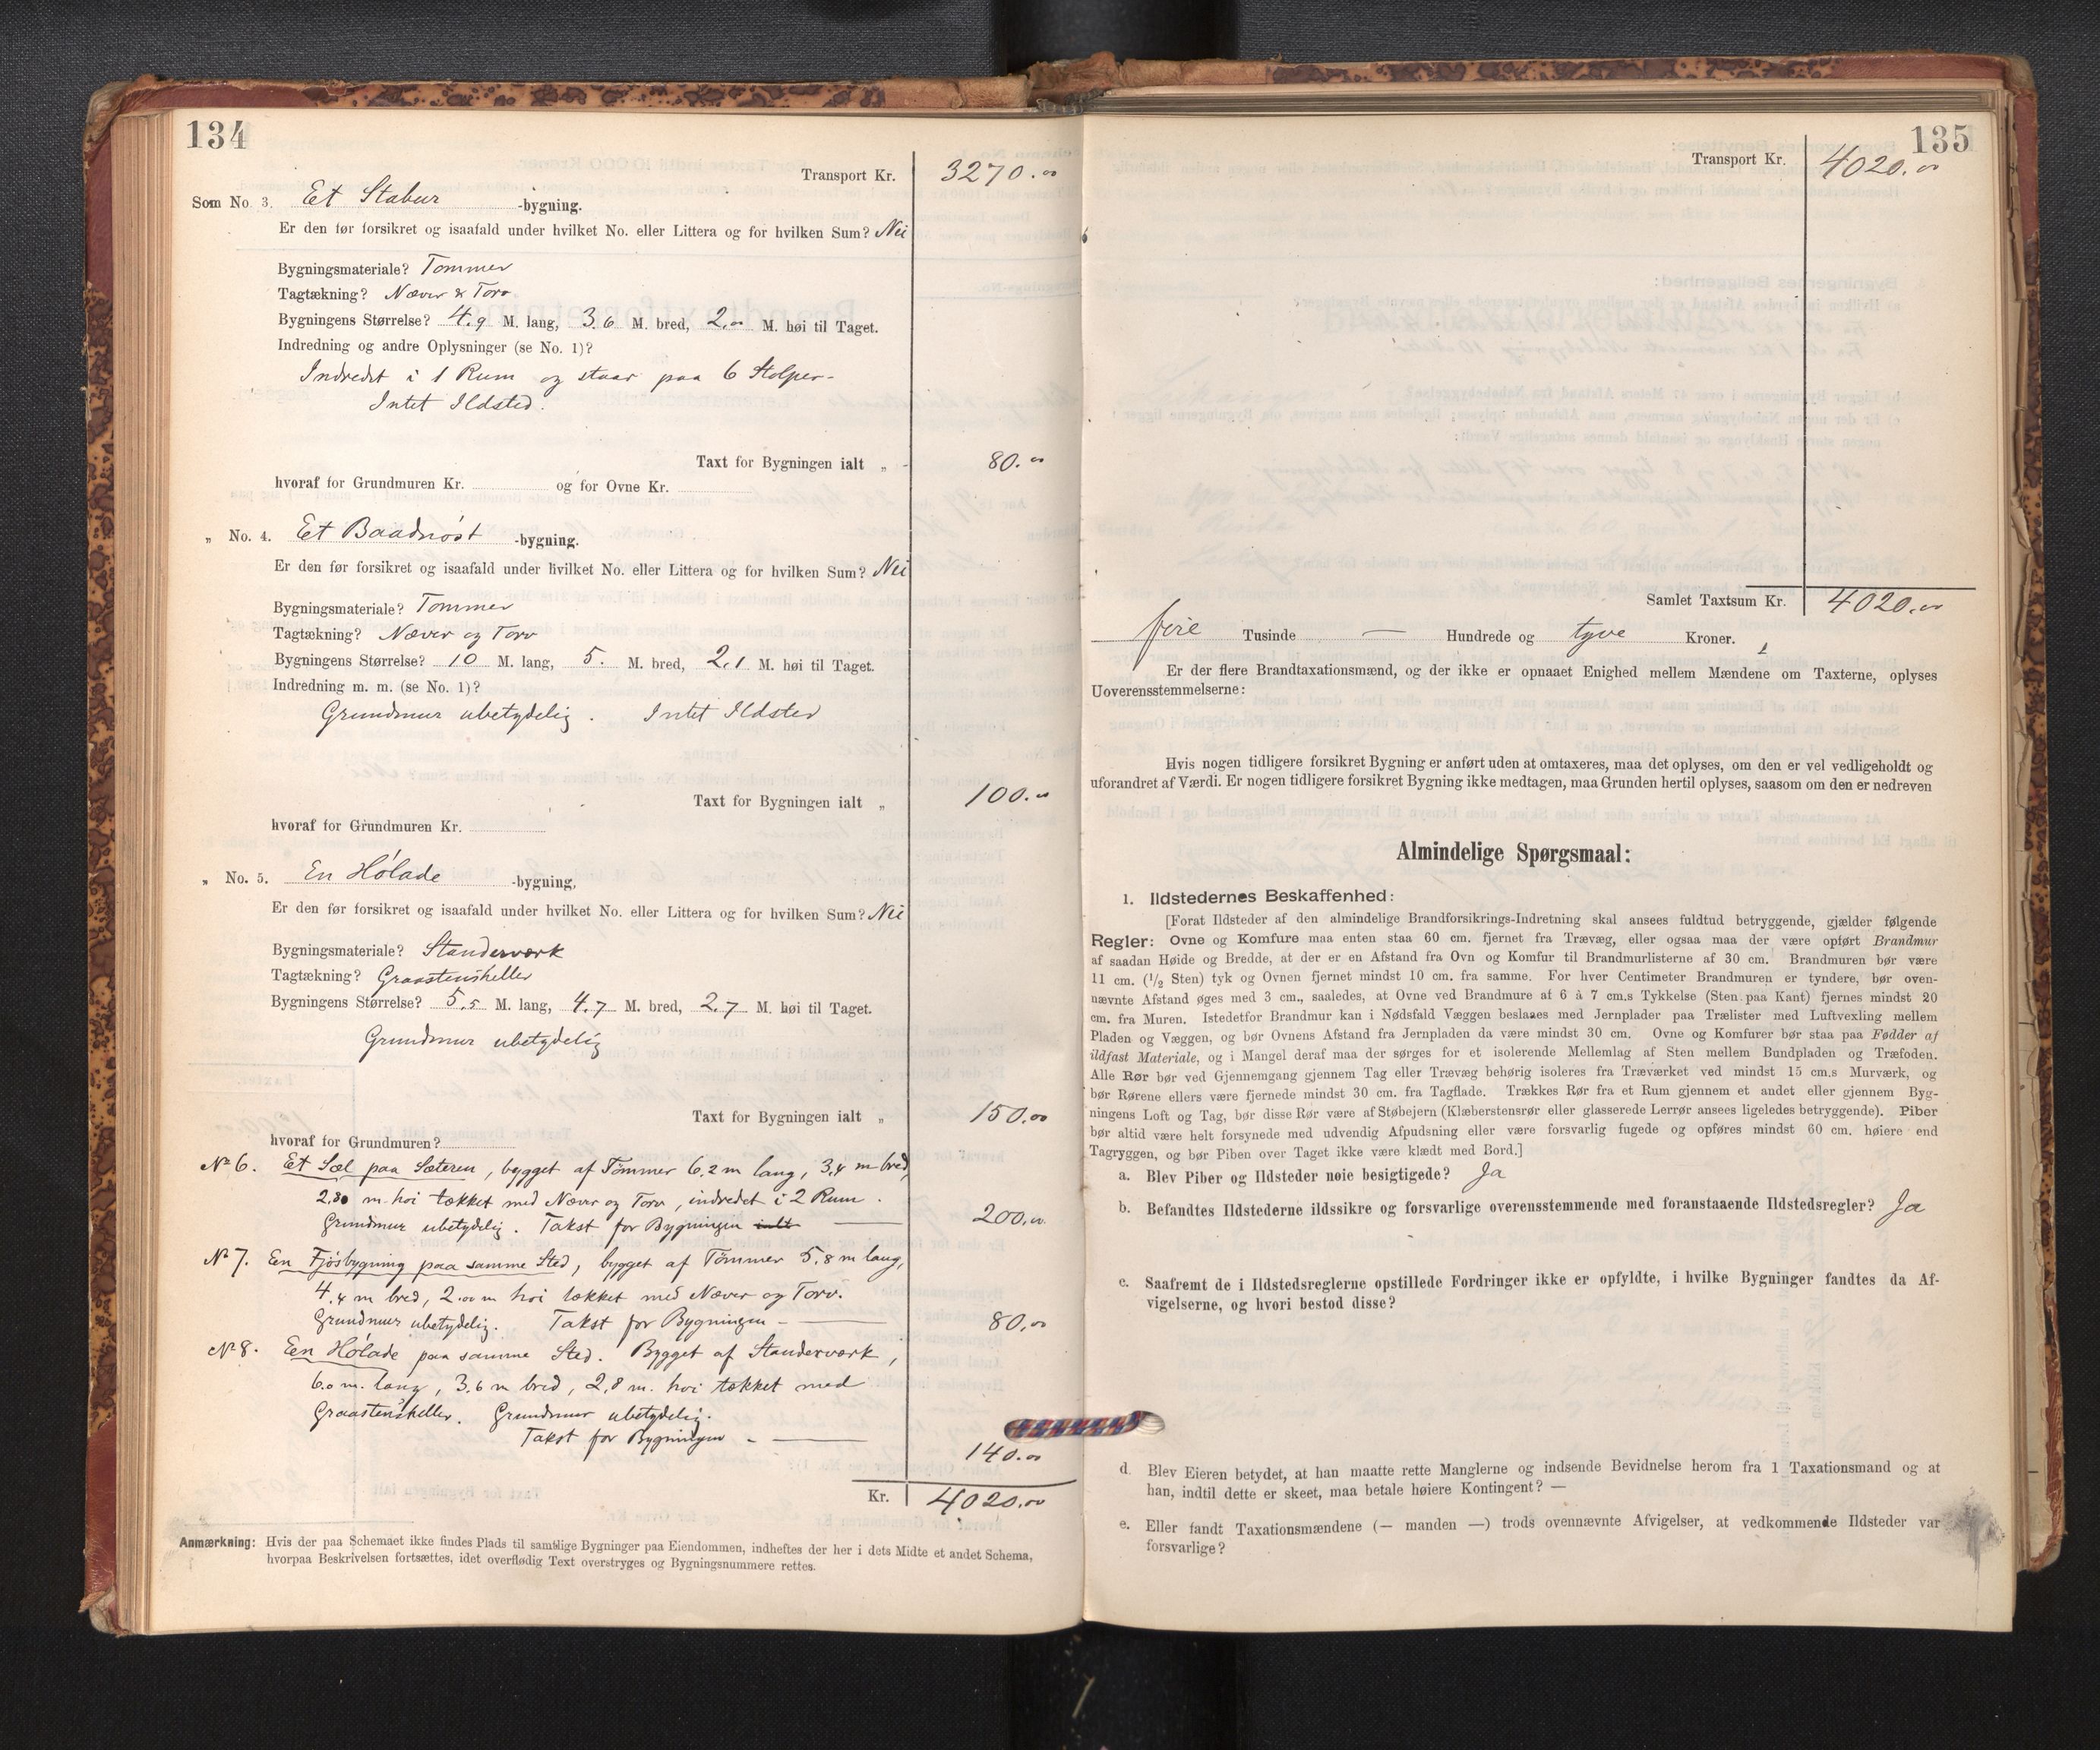 134
Transport Kr. 3270.00
Som No. 3. Et Stabur -bygning.
Er den før forsikret og isaafald under hvilket No. eller Littera og for hvilken Sum? Nei
Bygningsmateriale? Tømmer
Tagtækning? Næver & Torv
Bygningens Størrelse? 4.9 M. lang, 3.6 M. bred, 2.00 M. høi til Taget.
Indredning og andre Oplysninger (se No. 1)?
Indredet i 1 Rum og staar paa 6 Stolper-
Intet Ildsted.
Taxt for Bygningen ialt „ - 80.00
hvoraf for Grundmuren Kr. og for Ovne Kr.
„ No. 4. Et Baadnøst -bygning.
Er den før forsikret og isaafald under hvilket No. eller Littera og for hvilken Sum? Nei
Bygningsmateriale? Tømmer
Tagtækning? Næver og Torv
Bygningens Størrelse? 10 M. lang, 5. M. bred, 2.1 M. høi til Taget.
Indredning m. m. (se No. 1)?
Grundmur ubetydelig. Intet Ildsted
Taxt for Bygningen ialt „ 100.00
hvoraf for Grundmuren Kr.
„ No. 5. En Hølade -bygning,
Er den før forsikret og isaafald under hvilket No. eller Littera og for hvilken Sum? Nei
Bygningsmateriale? Standerværk
Tagtækning? Graastensheller
Bygningens Størrelse? 5.5 M. lang, 4.7 M. bred, 2.7 M. høi til Taget.
Grundmur ubetydelig
Taxt for Bygningen ialt „ 150.00
hvoraf for Grundmuren?
No 6. Et Sæl paa Sæteren, bygget af Tømmer 6.2 m lang, 3.4 m bred,
2.80 m. høi tækket med Næver og Torv, indredet i 2 Rum.
Grundmur ubetydelig. Takst for Bygningen ialt — 200.00
No 7. En Fjøsbygning paa samme Sted, bygget af Tømmer 5.8 m lang,
4.4 m bred, 2.00 m høi tækket med Næver og Torv.
Grundmur ubetydelig. Takst for Bygningen - — 80.00
No 8. Een Hølade paa samme Sted. Bygget af Standerværk,
6.0 m. lang, 3.6 m bred, 2.8 m. høi tækket med
Graastensheller. Grundmur ubetydelig.
Takst for Bygningen - — 140.00
Kr. 4020.00
Anmærkning: Hvis der paa Schemaet ikke findes Plads til samtlige Bygninger paa Eiendommen, indheftes der her i dets Midte et andet Schema,
hvorpaa Beskrivelsen fortsættes, idet overflødig Text overstryges og Bygningsnummere rettes.
135
Transport Kr. 4020.00
Samlet Taxtsum Kr. 4020.00
fire Tusinde — Hundrede og tyve Kroner.
Er der flere Brandtaxationsmænd, og der ikke er opnaaet Enighed mellem Mændene om Taxterne, oplyses
Uoverensstemmelserne:
Hvis nogen tidligere forsikret Bygning er anført uden at omtaxeres, maa det oplyses, om den er vel vedligeholdt og
uforandret af Værdi. Er nogen tidligere forsikret Bygning ikke medtagen, maa Grunden hertil oplyses, saasom om den er nedreven
Almindelige Spørgsmaal:
1. Ildstedernes Beskaffenhed:
[Forat Ildsteder af den almindelige Brandforsikrings-Indretning skal ansees fuldtud betryggende, gjælder følgende
Regler: Ovne og Komfure maa enten staa 60 cm. fjernet fra Trævæg, eller ogsaa maa der være opført Brandmur
af saadan Høide og Bredde, at der er en Afstand fra Ovn og Komfur til Brandmurlisterne af 30 cm. Brandmuren bør være
11 cm. (1/2 Sten) tyk og Ovnen fjernet mindst 10 cm. fra samme. For hver Centimeter Brandmuren er tyndere, bør oven-
nævnte Afstand øges med 3 cm., saaledes, at Ovne ved Brandmure af 6 à 7 cm.s Tykkelse (Sten paa Kant) fjernes mindst 20
cm. fra Muren. Istedetfor Brandmur kan i Nødsfald Væggen beslaaes med Jernplader paa Trælister med Luftvexling mellem
Pladen og Væggen, og bør Ovnens Afstand fra Jernpladen da være mindst 30 cm. Ovne og Komfurer bør staa paa Fødder af
ildfast Materiale, og i Mangel deraf maa der sørges for et isolerende Mellemlag af Sten mellem Bundpladen og Træfoden.
Alle Rør bør ved Gjennemgang gjennem Tag eller Trævæg behørig isoleres fra Træværket ved mindst 15 cm.s Murværk, og
bør Rørene ellers være fjernede mindst 30 cm. fra Tagflade. Trækkes Rør fra et Rum gjennem et andet eller gjennem Byg-
ningens Loft og Tag, bør disse Rør være af Støbejern (Klæberstensrør eller glasserede Lerrør ansees ligeledes betryggende). Piber
bør altid være helt forsynede med udvendig Afpudsning eller være forsvarlig fugede og opføres mindst 60 cm. høiere end
Tagryggen, og bør Piben over Taget ikke være klædt med Bord.]
a. Blev Piber og Ildsteder nøie besigtigede? Ja
b. Befandtes Ildstederne ildssikre og forsvarlige overensstemmende med foranstaaende Ildstedsregler? Ja
c. Saafremt de i Ildstedsreglerne opstillede Fordringer ikke er opfyldte, i hvilke Bygninger fandtes da Af-
vigelserne, og hvori bestod disse?
d. Blev Eieren betydet, at han maatte rette Manglerne og indsende Bevidnelse herom fra 1 Taxationsmand og at
han, indtil dette er skeet, maa betale høiere Kontingent? —
e. Eller fandt Taxationsmændene (— manden —) trods ovennævnte Afvigelser, at vedkommende Ildsteder var
forsvarlige?